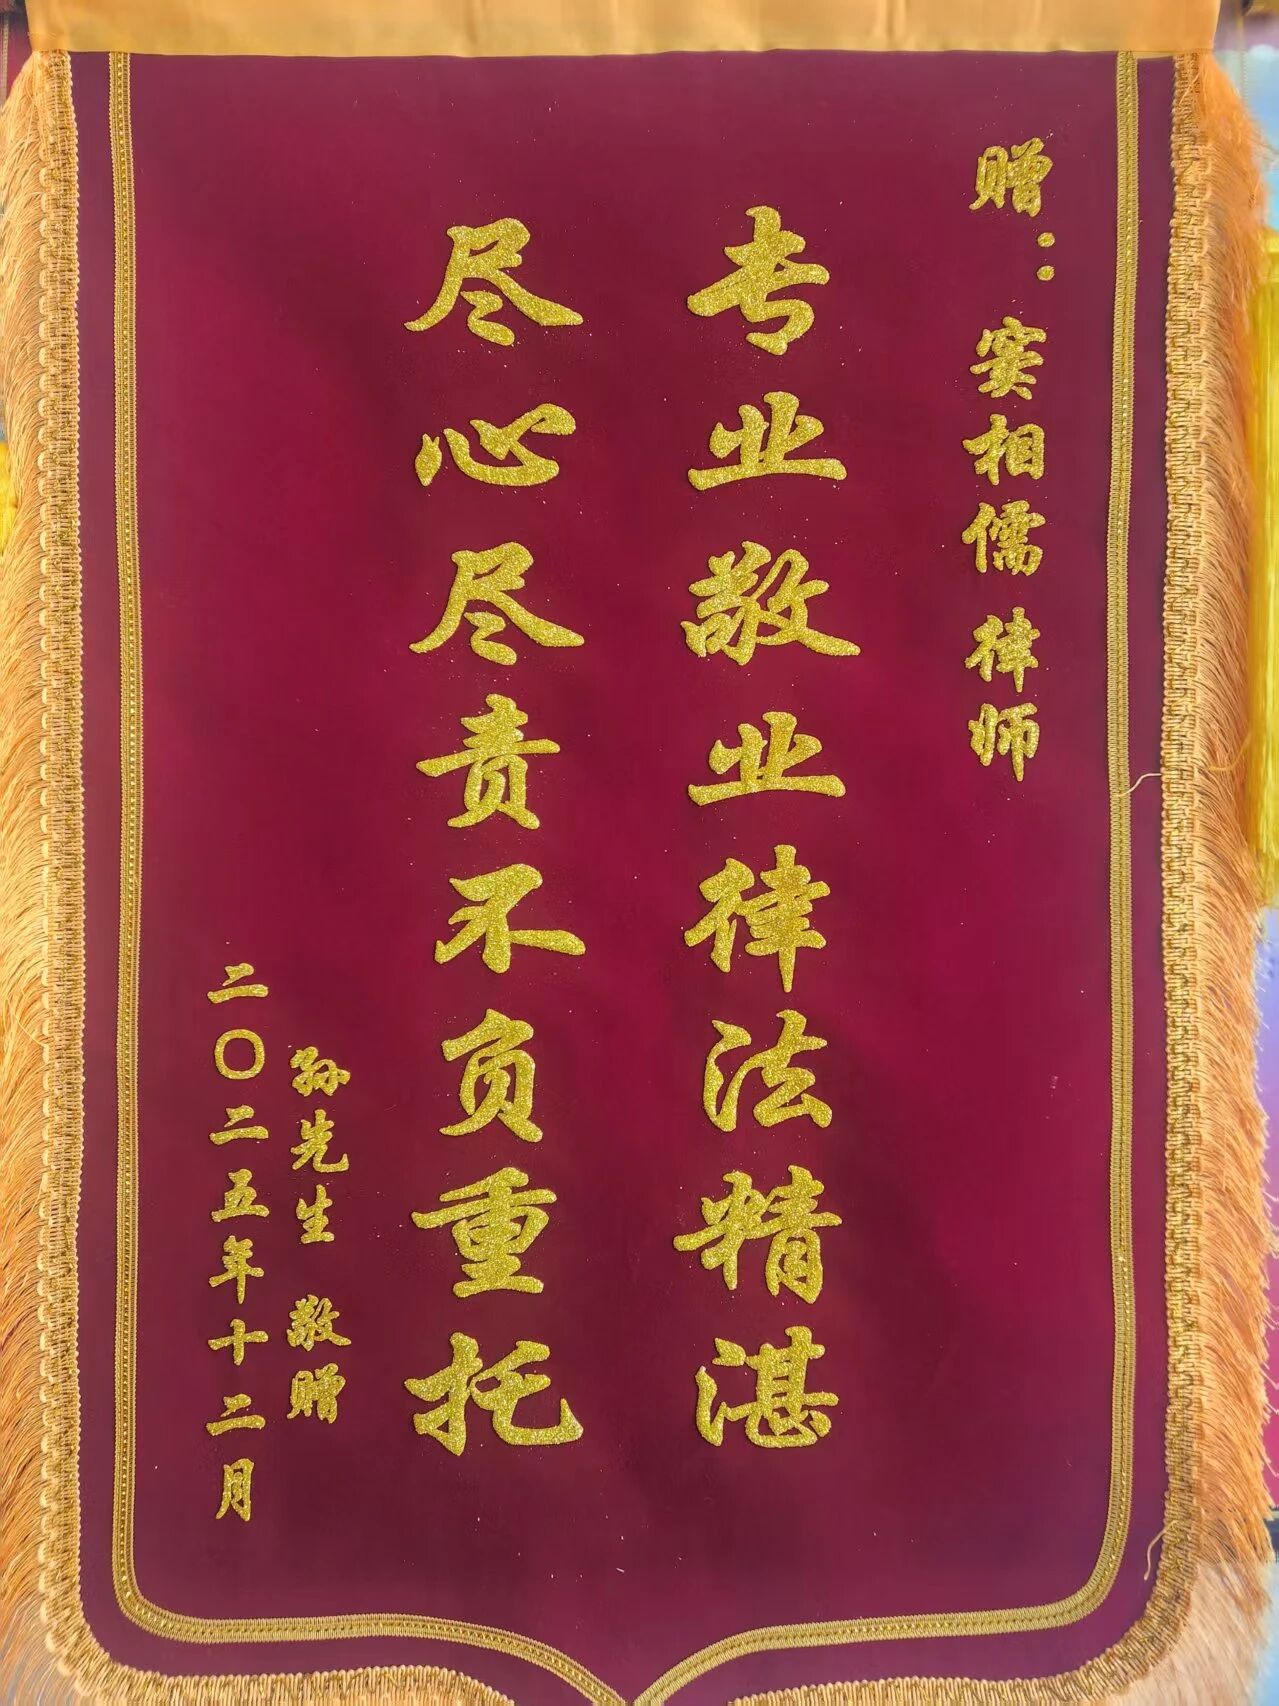 赠：窦相儒 律师
专业敬业律法精湛
尽心尽责不负重托
孙先生 敬赠
二〇二五年十二月